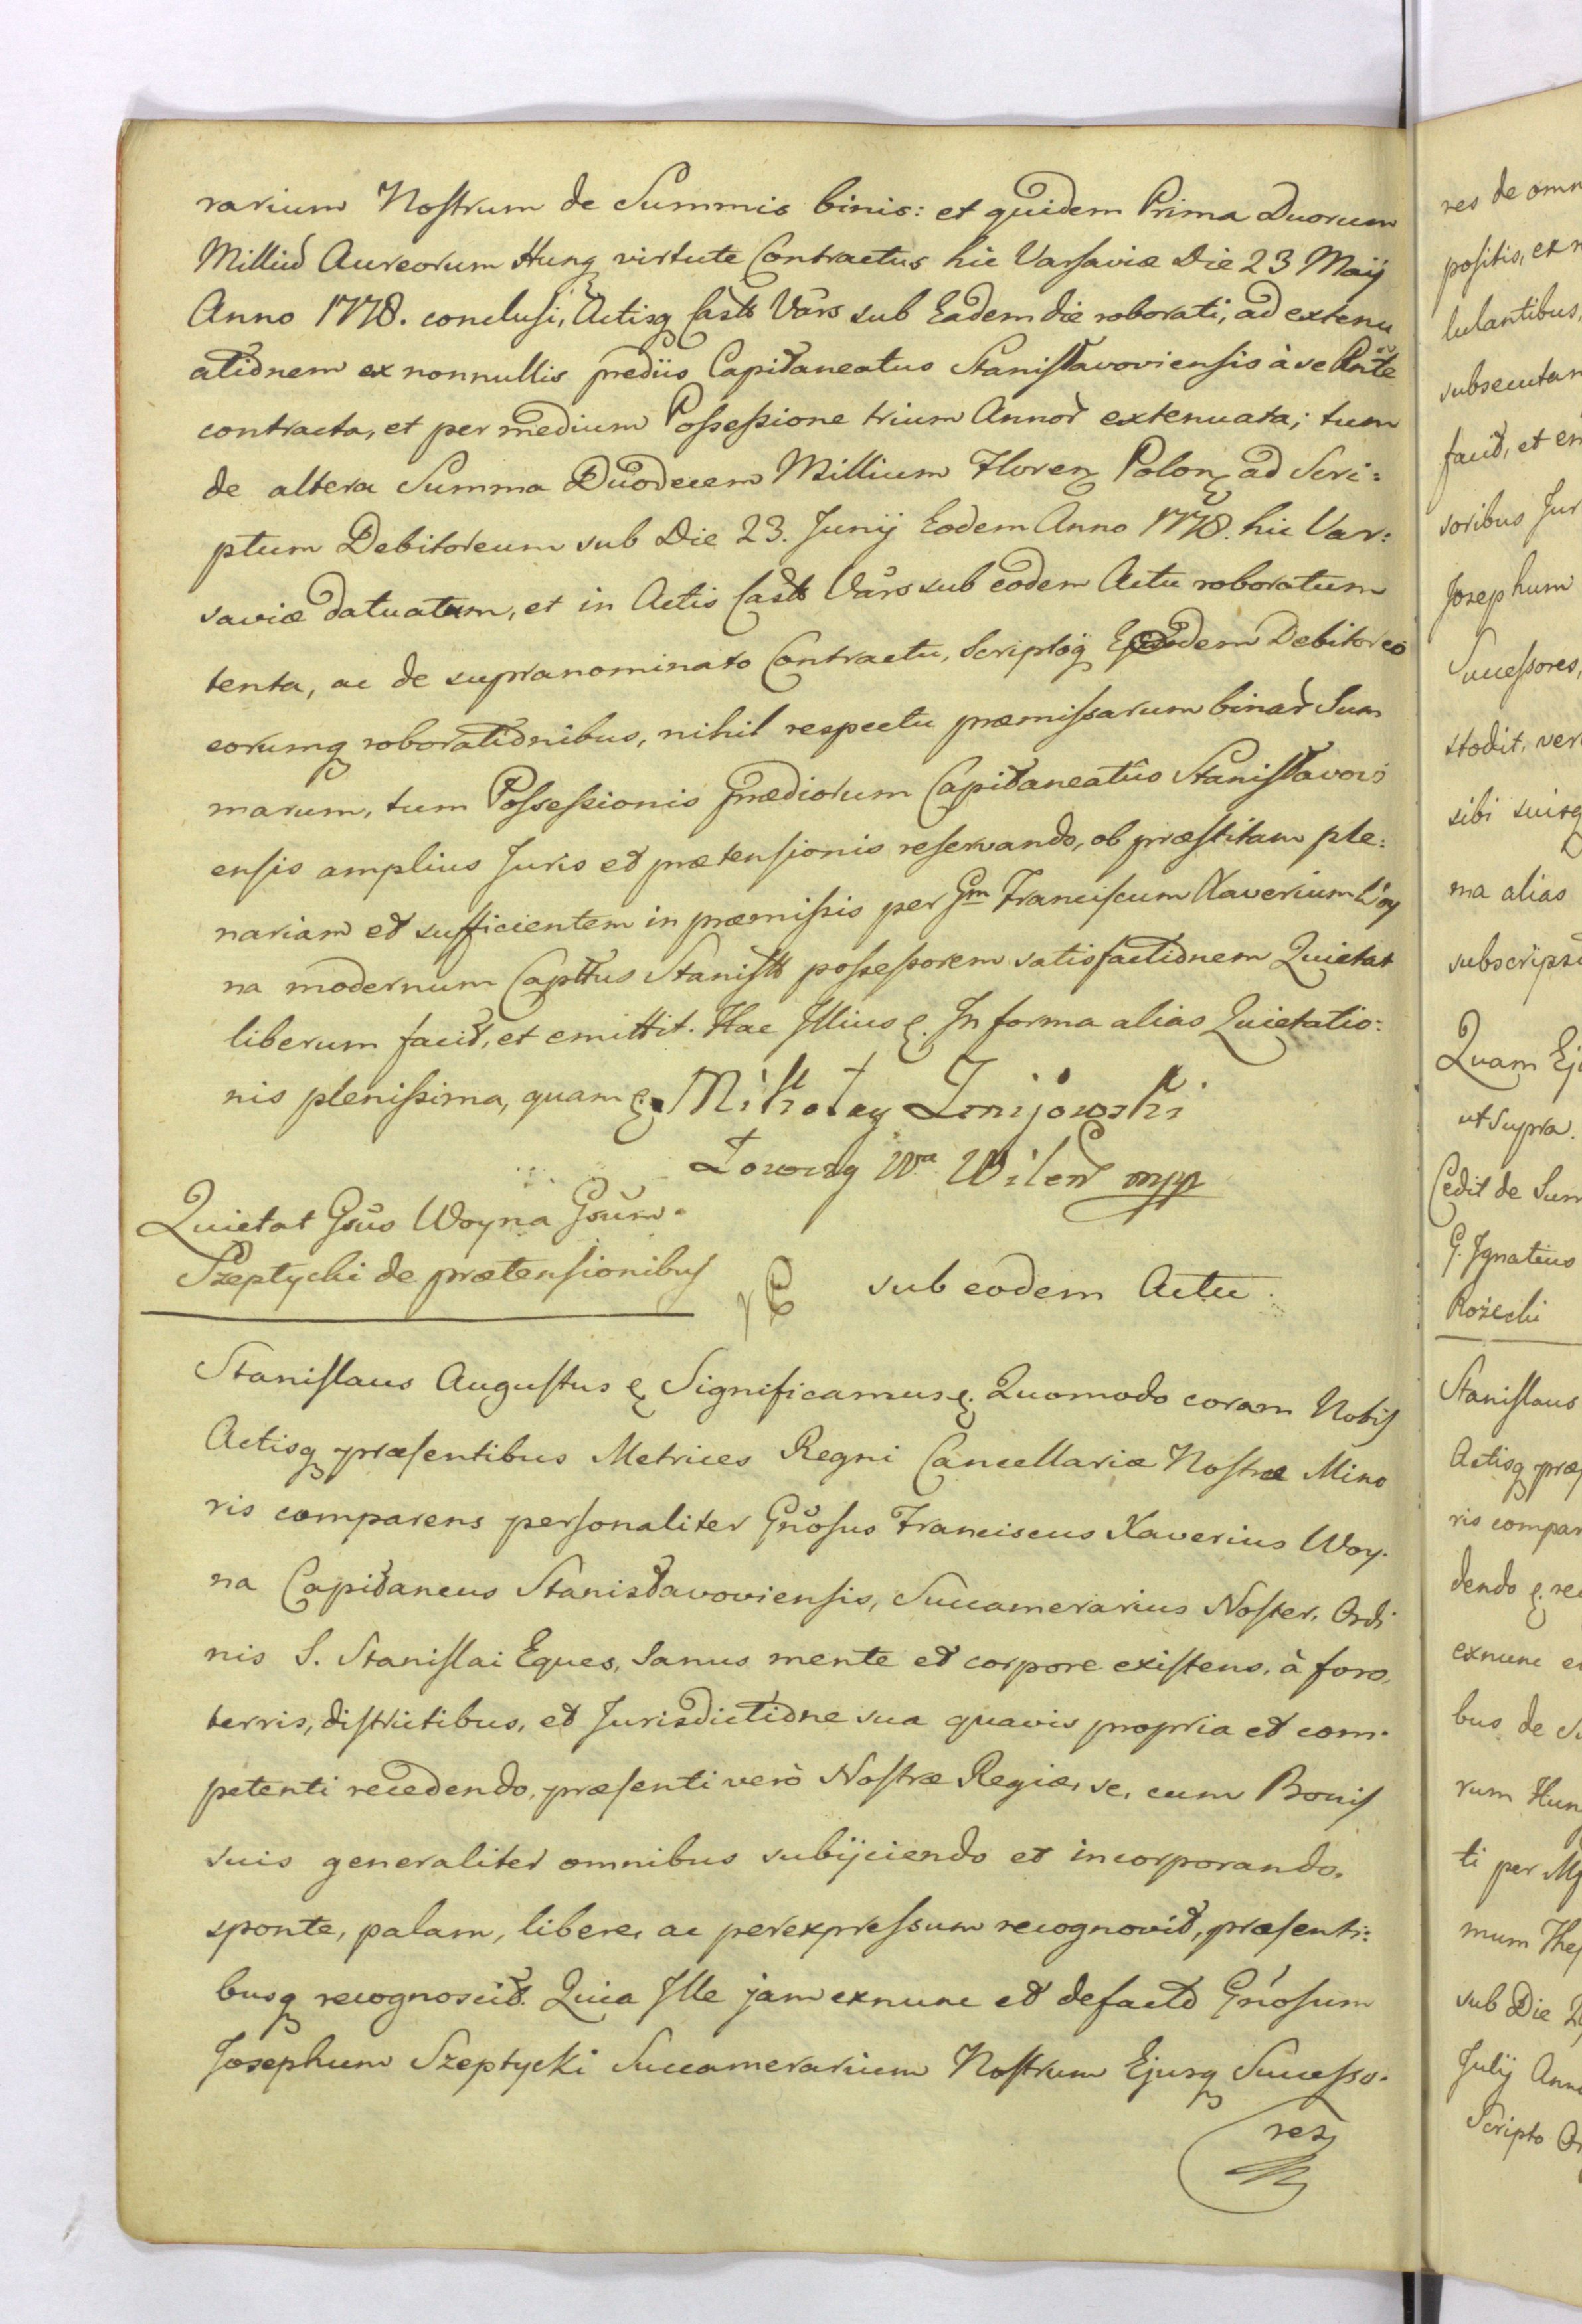 rarium Nostrum de Summis binis: et quidem Prima Duorum
Milliū Aureorum Hung virtute Contractus hic Varsaviæ Die 23 Maij
Anno 1778. conclusi, Actisq Castr Vars sub Eadem die roborati, ad extenu
ationem ex nonnullis prediis Capitaneatus Stanislavoviensis à se
contracta, et per medium Possessione trium Annor extenuata; tum
de altera Summa Duodecem Millium Floren Polon ad Scri:
ptum Debitoreum sub Die 23. Junij Eodem Anno 1778. hic Var:
saviæ datuatum, et in Actis Castr Vars sub eodem Actu roboratum
tenta, ac de supranominato Contractu, Scriptoq Debitoreo
eorumq roborationibus, nihil respectu præmissarum binar Sum
marum, tum Possessionis prædiorum Capitaneatûs Stanislavovi
ensis amplius Juris et prætensionis reservando, ob præstitam ple:
nariam et sufficientem in præmissis per Gm Franciscum Xaverium Woy
na modernum Capttus Stanisl possessorem satisfactionem Quietat
liberum facit, et emittit. Hac Illius &. In forma alias Quietatio:
nis plenissima, quam &. Mikołay
Łowczy Wa Wileń mpp
Quietat Gsus Woyna Gsum
Szeptycki de prætensionibus
sub eodem Actu.
Stanislaus Augustus & Significamus &. Quomodo coram Nobis
Actisq præsentibus Metrices Regni Cancellariæ Nostræ Mino
ris comparens personaliter Gnosus Franciscus Xaverius Woy.
na Capitaneus Stanislavoviensis, Succamerarius Noster, Ordi
nis S. Stanislai Eques, Sanus mente et corpore existens, à foro,
terris, districtibus, et Jurisdictione sua quavis propria et com.
petenti recedendo, præsenti verò Nostræ Regiæ, se, cum Bonis
suis generaliter omnibus subijciendo et incorporando,
sponte, palam, libere, ac perexpressum recognovit, præsenti:
busq recognoscit. Quia Ille jam exnunc et defacto Gnosum
Josephum Szeptycki Succamerarium Nostrum Ejusq Successo.
res
res de omn
positis, ex n
lulantibus,
subsecutam
facit, et em
soribus Jur
Josephum
Successores,
stodit, ver
sibi suisq
ma alias
subscripsi
Quam Ej
ut Supra.
Cedit de Sum
G. Ignatius
Rożecki
Stanislaus
Actisq præs
ris compar
dendo &. re
exnunc e
bus de S
rum Hun
ti per
mum The
sub Die 2
Julij Ann
Scripto